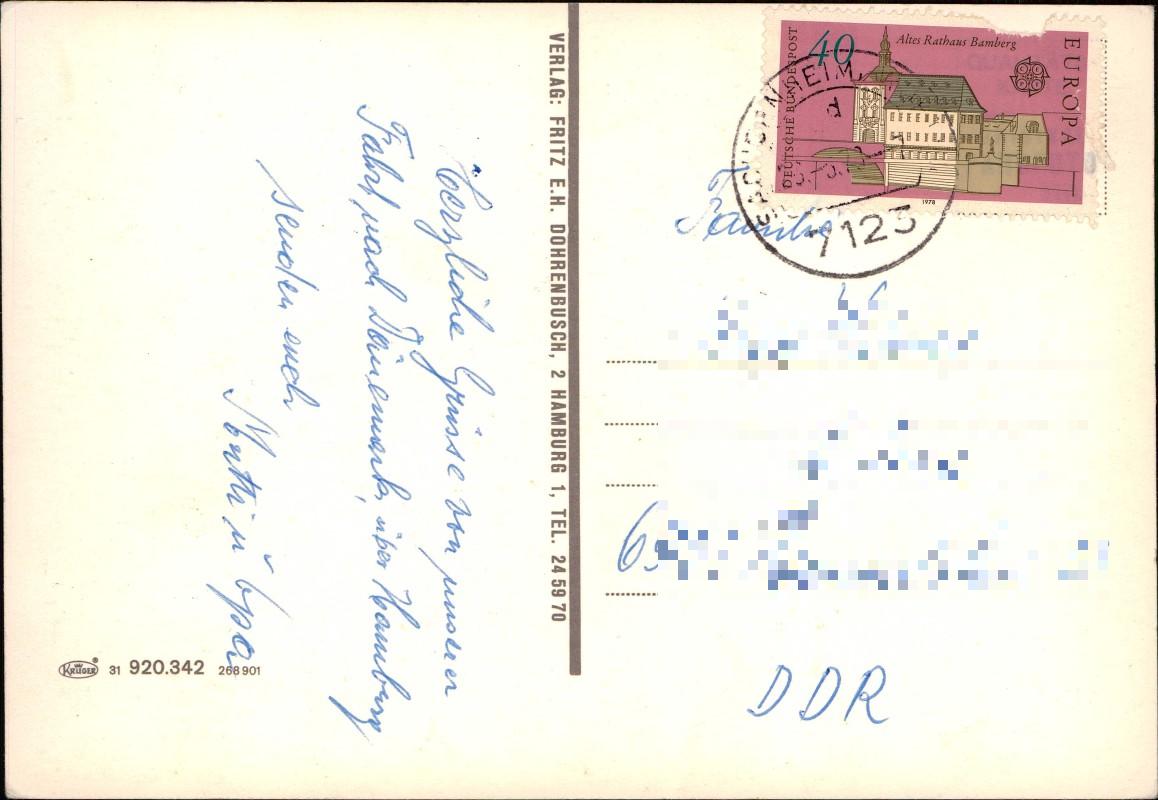 Herzliche Grüsse von unserer
Fahrt nach Dänemark, über Hamburg
senden euch
Mutti u Opa
VERLAG: FRITZ E.H. DOHRENBUSCH, 2 HAMBURG 1, TEL. 24 59 70
KRÜGER® 31 920.342 268 901
40
Altes Rathaus Bamberg
EUROPA
DEUTSCHE BUNDESPOST
1978
7123
Familie
DDR